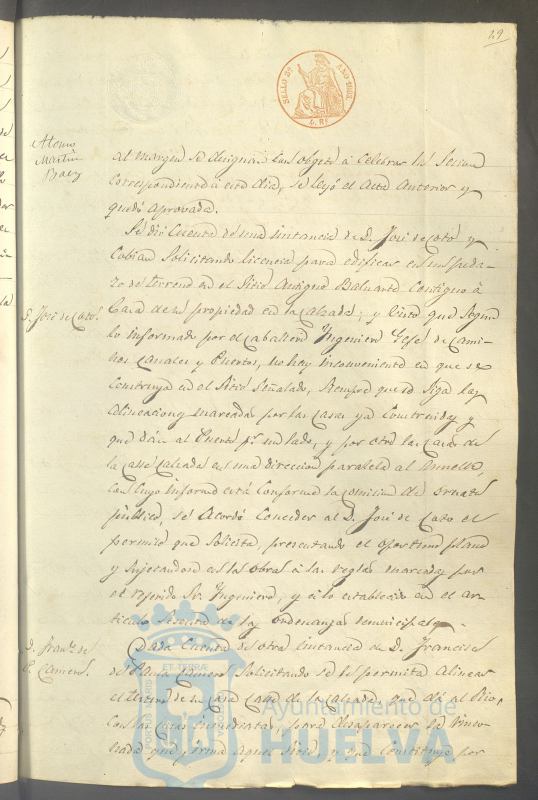 29
SELLO 2º AÑO 1862
4 Rs
Alonso
Martin
Baez
al margen se designan con objeto a celebrar la Sesion
Correspondiente a este dia, se leyó el Acta Anterior y
quedó aprovada.
Se dió Cuenta de una instancia de D. José de Coto y
Cobian Solicitando licencia para edificar en un peda-
zo de terreno en el Sitio Antiguo Baluarte Contiguo à
D. José de Coto
Casa de su propiedad en la Calzada; y Visto que segun
lo informado por el Caballero Ingeniero Gefe de Cami-
nos Canales y Puertos, no hay inconveniente en que se
Construya en el Sitio Señalado, Siempre que se Siga las
alineaciones marcadas por las Casas ya Construidas y
que dán al Puerto pr un lado, y por otro las Casas de
la Calle Calzada en una direccion paralela al Muelle,
con cuyo informe está Conforme la Comision de ornato
público, se Acordó Conceder al D. José de Coto el
permiso que Solicita, presentando el oportuno plano
y Sujetandose en las obras à las reglas marcadas por
el referido Sr. Ingeniero, y a lo establecido en el ar-
ticulo Sesenta de las ordenanzas municipales
D. Franco de
P. Camero
Dada Cuenta de otra instancia de D. Francisco
de Paula Camero Solicitando se le permita Alinear
el terreno de su Casa Calle de la Calzada, que dá al Rio,
con las Casas inmediatas, para desaparecer la rinco-
nada que forma aquel Sitio, y que Constituye por
PORTUS MARIS
ET TERRÆ
CUSTODIA
Ayuntamiento de
HUELVA